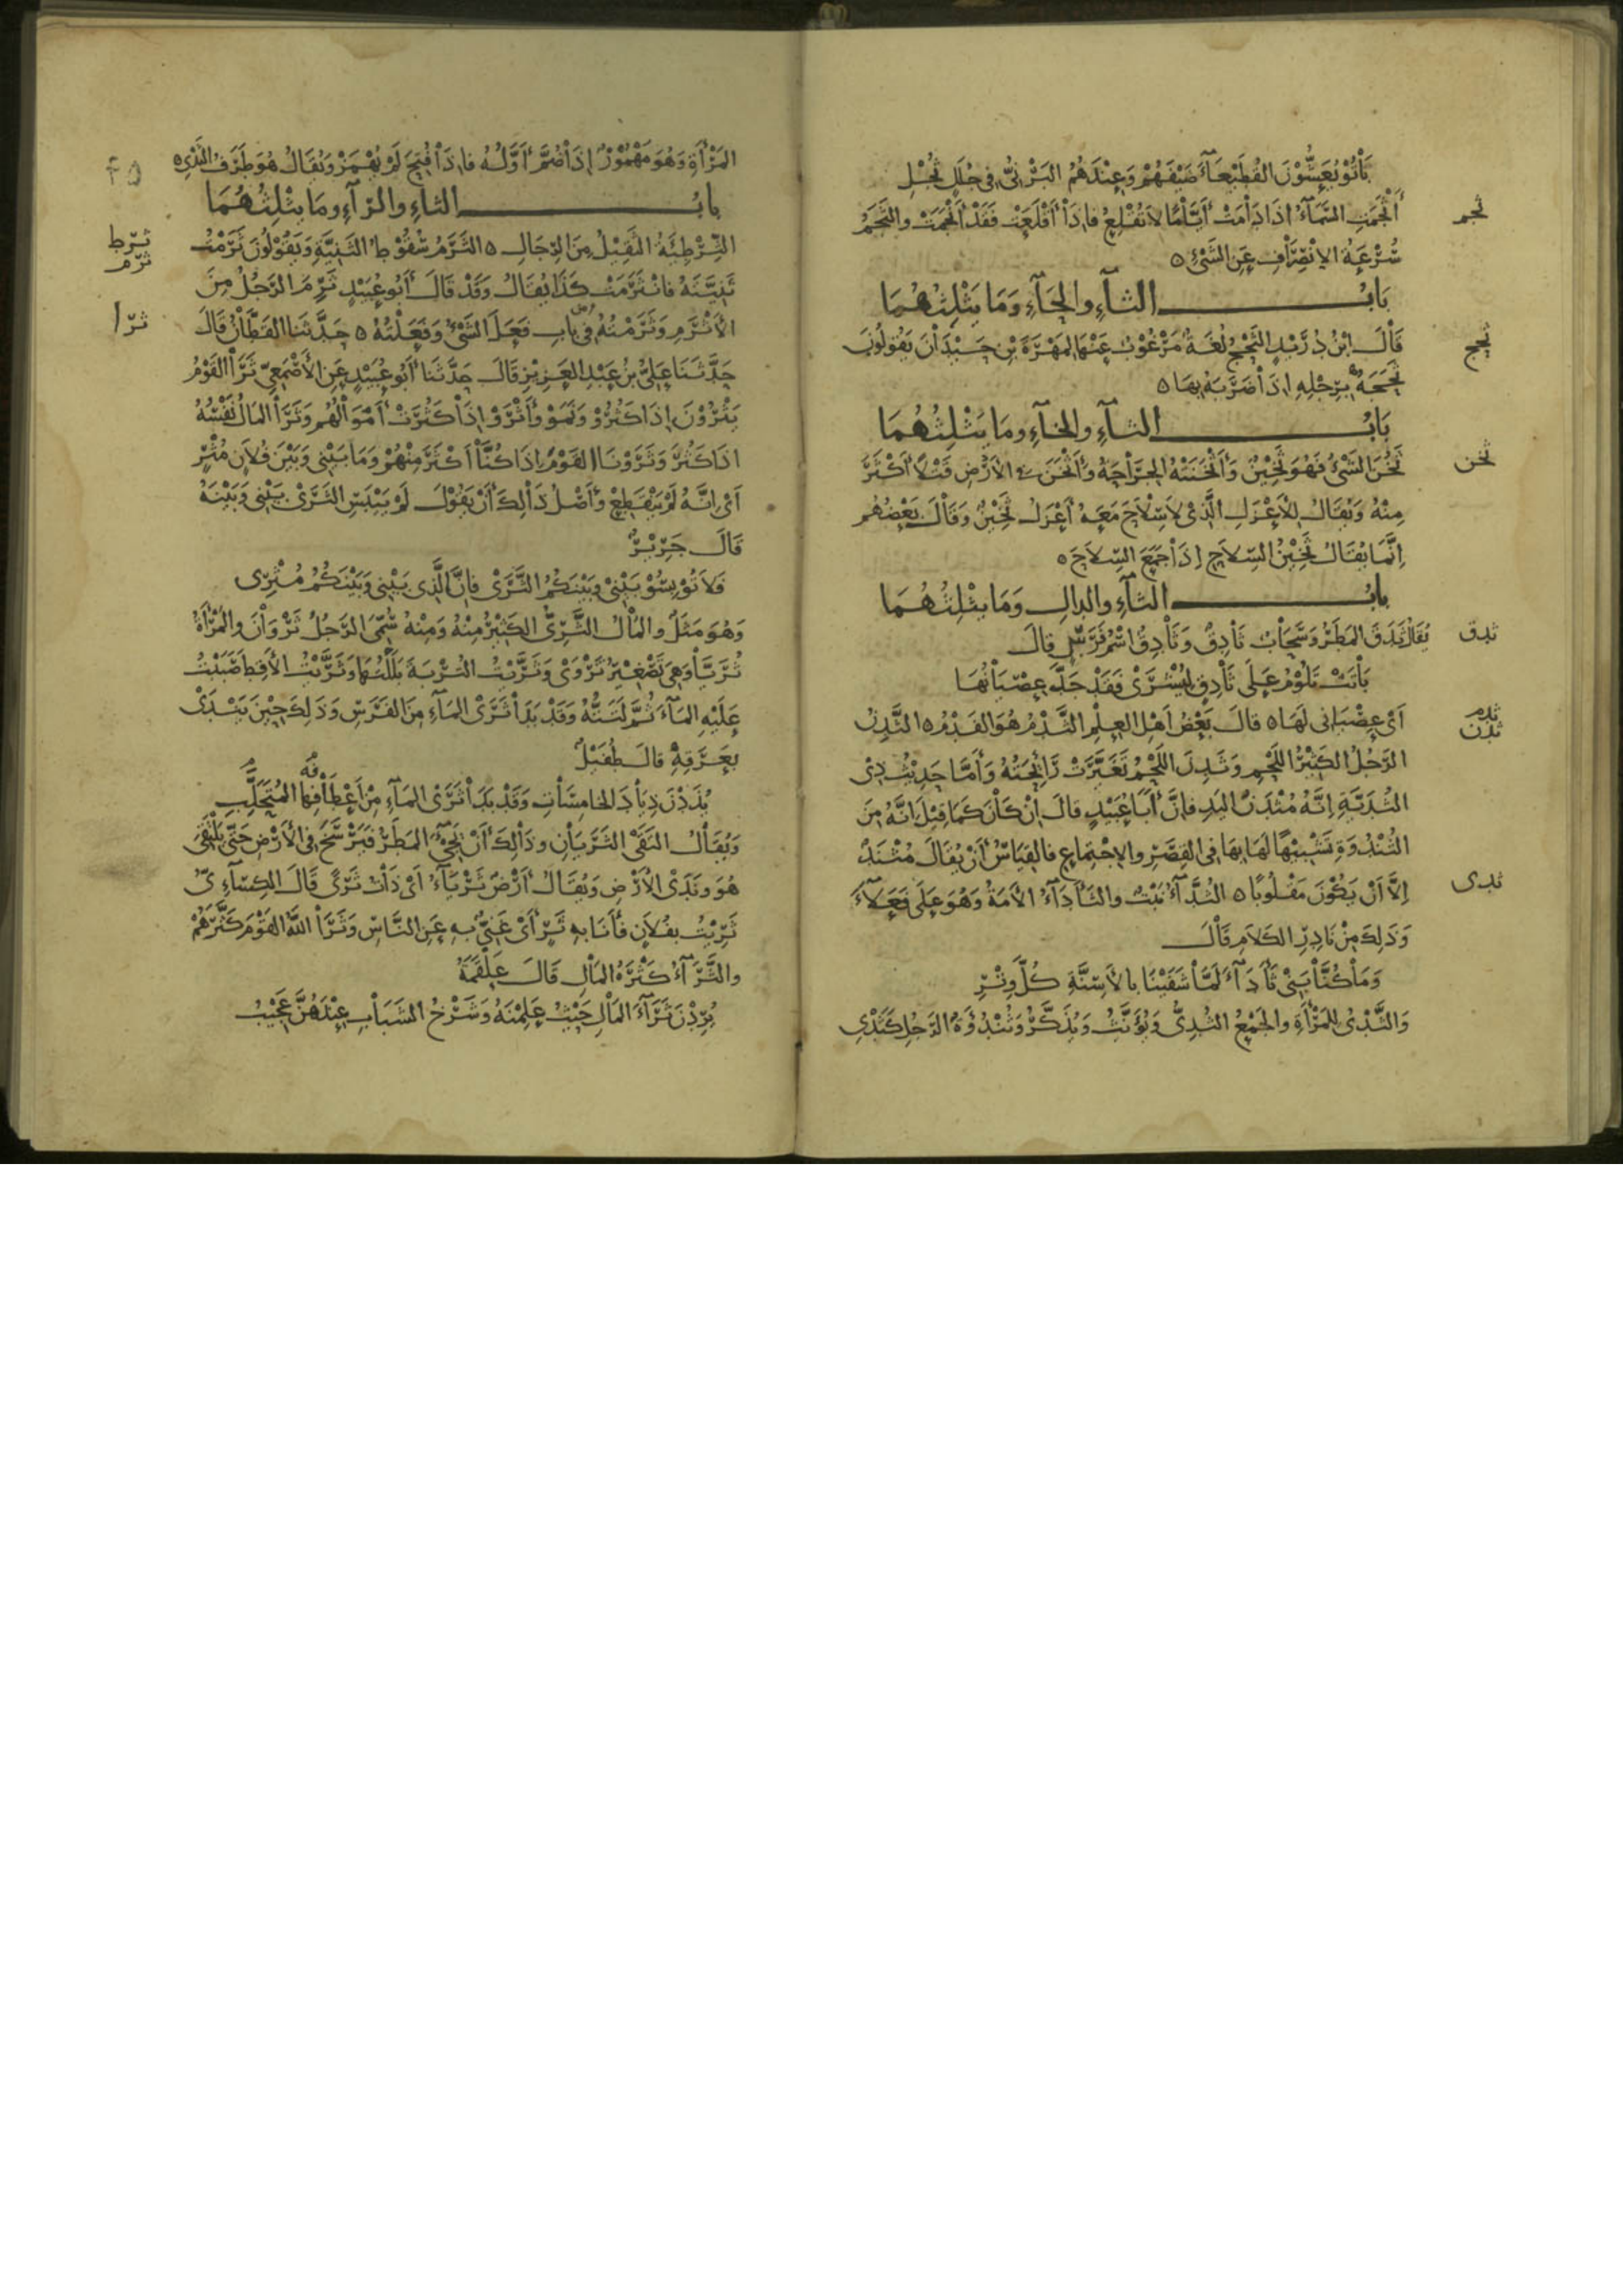 بَاتُوْا يُعَشُّوْنَ القُطَيْعَآءَ ضَيْفَهُمْ وَعِنْدَهُمُ البَرْنِيُّ فِي جُلَلٍ ثُجْلِ
ثجم
أَثْجَمَتِ السَّمَآءُ اِذَا دَامَتْ أَيَّامًا لاَ تُقْلِعُ فَاِذَا أَقْلَعَتْ فَقَدْ أَثْجَمَتْ والثَّجَمُ
سُرْعَةُ الاِنْصِرَافِ عَنِ الشَّيْءِ ٥
بَابُ الثآءِ والحَآءِ وَمَا يَثْلِثُهُمَا
ثحج
قَالَ ابْنُ دُرَيْدٍ الثَّحْجُ لُغَةٌ مَرْغُوْبٌ عَنْهَا لِمَهْرَةَ بْنِ حَيْدَانَ يَقُولُونَ
ثَحَجَهُ بِرِجْلِهِ اِذَا ضَرَبَهُ بِهَا ٥
بَابُ الثآءِ والخآءِ ومَا يَثْلِثُهُمَا
ثخن
ثَخُنَ الشَّيْءُ فَهُوَ ثَخِيْنٌ وَأَثْخَنَتْهُ الجِرَاحَةُ وَأَثْخَنَ فِي الأَرْضِ قَتْلاً أَكْثَرَ
مِنْهُ وَيُقَالُ لِلأَعْزَلِ الَّذِي لاَ سِلاَحَ مَعَهُ أَعْزَلُ ثَخِيْنٌ وَقَالَ بَعْضُهُم
اِنَّمَا يُقَالُ ثَخِيْنُ السِّلاَحِ اِذَا جَمَعَ السِّلاَحَ ٥
بابُ الثآءِ والدالِ وَمَا يثْلِثُهُمَا
ثدق
يُقَالُ ثَدَقَ المَطَرُ وَسَحَابٌ ثَادِقٌ وَثَادِقُ اسْمُ فَرَسٍ قالَ
بَاتَتْ تَلُوْمُ عَلَى ثَادِقٍ لِيُشْرَى فَقَدْ جَدَّ عِصْيَانُهَا
ثدم
ثدن
أَيْ عِصْيَانِي لَهَا ٥ قالَ بَعْضُ أَهْلِ العِلْمِ الثَّدْمُ هُوَ الفَدْمُ ٥ الثَّدِنُ
الرَّجُلُ الكَثِيْرُ اللَّحْمِ وَثَدِنَ اللَّحْمُ تَغَيَّرَتْ رَائِحَتُهُ وَأَمَّا حَدِيْثُ ذِي
الثُّدَيَّةِ اِنَّهُ مُثْدَنُ اليَدِ فَاِنَّ أَبَا عُبَيْدٍ قالَ اِنْ كَانَ كَمَا قِيْلَ اِنَّهُ مِنَ
الثُّنْدُوَةِ تَشْبِيْهًا لَهَا بِهَا فِي القِصَرِ والاِجْتِمَاعِ فالقِيَاسُ أَنْ يُقَالَ مُثَنَّدٌ
ثدى
اِلاَّ أَنْ يَكُوْنَ مَقْلُوبًا ٥ الثُّدَّآءُ نَبْتٌ والثَّأْدَآءُ الأَمَةُ وَهُوَ عَلَى فَعَلآءَ
وَذَلِكَ مِنْ نَادِرِ الكَلاَمِ قَالَ
وَمَا كُنَّا بَنِي ثَأْدَآءَ لَمَّا شَفَيْنَا بِالأَسِنَّةِ كُلَّ وِتْرِ
وَالثَّدْيُ لِلمَرْأَةِ والجَمْعُ الثُّدِيُّ وَيُؤَنَّثُ وَيُذَكَّرُ وَثُنْدُوَةُ الرَّجُلِ كَثَدْيِ
٤٥
المَرْأَةِ وَهُوَ مَهْمُوْزٌ اِذَا ضُمَّ أَوَّلُهُ فَاِذَا فُتِحَ لَمْ يُهْمَزْ وَيُقَالُ هُوَ طَرَفُ الثَّدْيِ ٥
بابُ الثآءِ والرّآءِ ومَا يثْلِثُهُمَا
ثرط
ثرم
الثِّرْطِئَةُ الثَّقِيْلُ مِنَ الرِّجَالِ ٥ الثَّرَمُ سُقُوْطُ الثَّنِيَّةِ وَيَقُوْلُوْنَ ثَرَمْتُ
ثَنِيَّتَهُ فَانْثَرَمَتْ كَذَا يُقَالُ وَقَدْ قَالَ أَبُو عُبَيْدٍ ثَرِمَ الرَّجُلُ مِنَ
ثرا
الأَثْرَمِ وَثَرَمْتُهُ فِي بابِ فَعِلَ الشَّيْءُ وَفَعَلْتُهُ ٥ حَدَّثَنَا القَطَّانُ قَالَ
حَدَّثَنَا عَلِيُّ بْنُ عَبْدِ العَزِيزِ قَالَ حَدَّثَنَا أَبُو عُبَيْدٍ عَنِ الأَصْمَعِيِّ ثَرَا القَوْمُ
يَثْرُوْنَ اِذَا كَثُرُوْ وَنَمَوْ وَأَثْرَوْ اِذَا كَثُرَتْ أَمْوَالُهُمْ وَثَرَا المَالُ نَفْسُهُ
اِذَا كَثُرَ وَثَرَوْنَا القَوْمَ اِذَا كُنَّا أَكْثَرَ مِنْهُمْ وَمَا بَيْنِي وَبَيْنَ فُلاَنٍ مُثْرٍ
أَيْ اِنَّهُ لَمْ يَنْقَطِعْ وَأَصْلُ ذَالِكَ أَنْ يَقُوْلَ لَمْ يَيْبَسِ الثَّرَى بَيْنِي وَبَيْنَهُ
قَالَ جَرِيْرٌ
فَلاَ تُوْبِسُوْ بَيْنِي وَبَيْنَكُمُ الثَّرَى فَاِنَّ الَّذِي بَيْنِي وَبَيْنَكُمُ مُثْرِى
وَهُوَ مَثَلٌ والمَالُ الثَّرِيُّ الكَثِيْرُ مِنْهُ وَمِنْهُ سُمِّيَ الرَّجُلُ ثَرْوَانَ والمَرْأَةُ
ثُرَيَّا وَهِيَ تَصْغِيْرُ ثَرْوَى وَثَرَّيْتُ التُّرْبَةَ بَلَلْتُهَا وَثَرَّيْتُ الأَقِطَ صَبَبْتُ
عَلَيْهِ المَآءَ ثُمَّ لَتَتُّهُ وَقَدْ بَدَا ثَرَى المَآءِ مِنَ الفَرَسِ وَذَلِكَ حِيْنَ يَنْدَى
بِعَرَقِهِ قالَ طُفَيْلٌ
يُذَدْنَ ذِيَادَ الخامِسَاتِ وَقَدْ بَدَا ثَرَى المَآءِ مِنْ أَعْطَافِهَا المُتَحَلِّبِ
وَيُقَالُ التَقَى الثَّرَيَانِ وذَالِكَ أَنْ يَجِيْءَ المَطَرُ فَيَرْسَخَ فِي الأَرْضِ حَتَّى يَلْتَقِيَ
هُوَ وَنَدَى الأَرْضِ وَيُقَالُ أَرْضٌ ثَرْيَآءُ أَيْ ذَاتُ ثَرًى قَالَ الكِسَآءِيُّ
ثَرِيْتُ بِفُلاَنٍ فَأَنَا بِهِ ثَرٍ أَيْ غَنِيٌّ بِهِ عَنِ النَّاسِ وَثَرَا اللهُ القَوْمَ كَثَّرَهُمْ
والثَّرَآءُ كَثْرَةُ المَالِ قَالَ عَلْقَمَةُ
يُرِدْنَ ثَرَآءَ المَالِ حَيْثُ عَلِمْنَهُ وَشَرْخُ الشَّبَابِ عِنْدَهُنَّ عَجِيْبُ